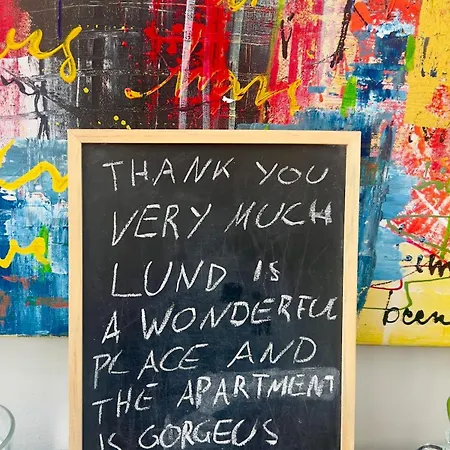 THANK YOU
VERY MUCH
LUND IS
A WONDERFUL
PLACE AND
THE APARTMENT
IS GORGEUS
been